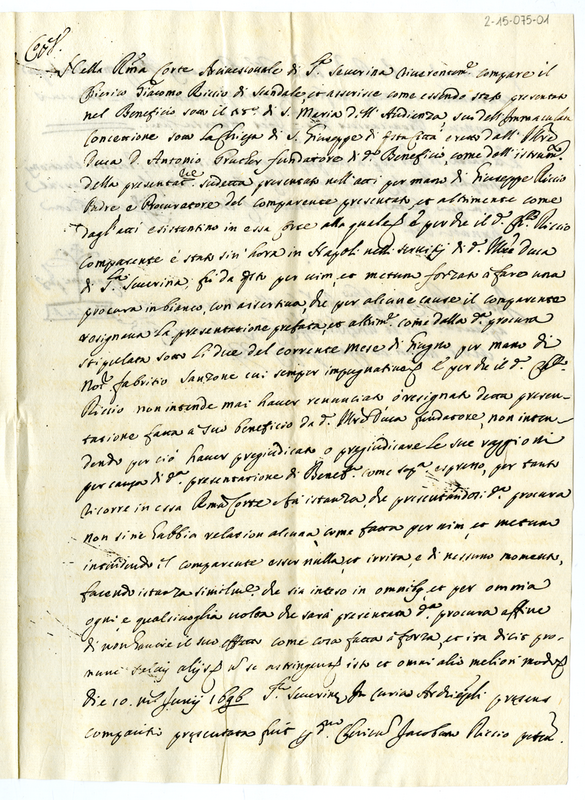 2-15-075-01
Cop.
Nella R.ma Corte Arcivescovale di S.ta Severina riverentem.te compare il
Chierico Giacomo Riccio di Scandale, et asserisce come essendo stato presentato
nel Beneficio sotto il tt.o di S. Maria dell'Audienza, seu dell'Immaculata
Concettione sotto la Chiesa di S. Giuseppe di detta Città eretto dall' Ill.re
Duca D. Antonio Gruther fundatore di d.o Beneficio come dall'istrum.to
della presentat.ne sudetta presentato nell'atti per mano di Giuseppe Riccio
Padre e Procuratore del comparente presentato, et altrimente come
dagl'atti esistentino in essa Corte alla quale e perche il d.o Riccio
comparente è stato sin'hora in Napoli nelli servitij di d.o Ill.re Duca
di S.ta Severina, fù da esso per vim, et metum forzato à fare una
procura in bianco, con assertiva, che per alcune cause il comparente
resignava la presentatione prefata, et altrim.te come dalla d.a procura
stipulata sotto li due del corrente mese di Giugno per mano di
Not.r Fabritio Sanzone cui semper impugnative E perche il d.o
Riccio non intende mai haver renunciato ò resignato detta presen-
tatione fatta a suo beneficio da d.o Ill.re Duca fundatore, non inten-
dendo per ciò haver pregiudicato, o pregiudicare le sue raggioni
per causa di d.a presentatione di Benef.o come sop.a espresso, per tanto
ricorre in essa R.ma Corte e fà istanza, che presentandosi d.a procura
non si ne habbia relation alcuna, come fatta per vim, et metum
intendendo il comparente esser nulla, et irrita, e di nessuno momento,
facendo istanza similm.te che sia inteso in omnibus, et per omnia
ogni, e qualsivoglia volta che sarà presentata d.a procura affine
di non havere il suo effetto come cosa fatta à forza, et ita dicit pro-
nunc salvis alijs et se astringens isto et omni alio meliori modo
die 10 m.s Junij 1696 S.ta Severina In Curia Archiep.li presens
comparitio presentata fuit per Clericum Jacobum Riccio peten.